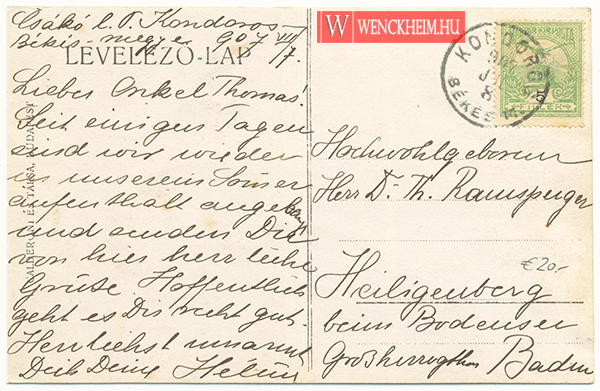 WENCKHEIM.HU
Csákó u. P. Kondoros
Békés-megye 907 VII/7.
LEVELEZŐ-LAP
Lieber Onkel Thomas!
Seit einigen Tagen
sind wir wieder
in unserem Somer
aufenthalt angelangt
und senden Dir
von hier herzliche
Grüße. Hoffentlich
geht es Dir recht gut.
Herzlichst umarmt
Dich Deine
KONDOROS
907
JUL
8
BÉKÉS M.
5
FILLÉR
Hochwohlgeboren
Herr Dr. Th. Ramsperger
€20.-
Heiligenberg
beim Bodensee
Großherzogthum Baden